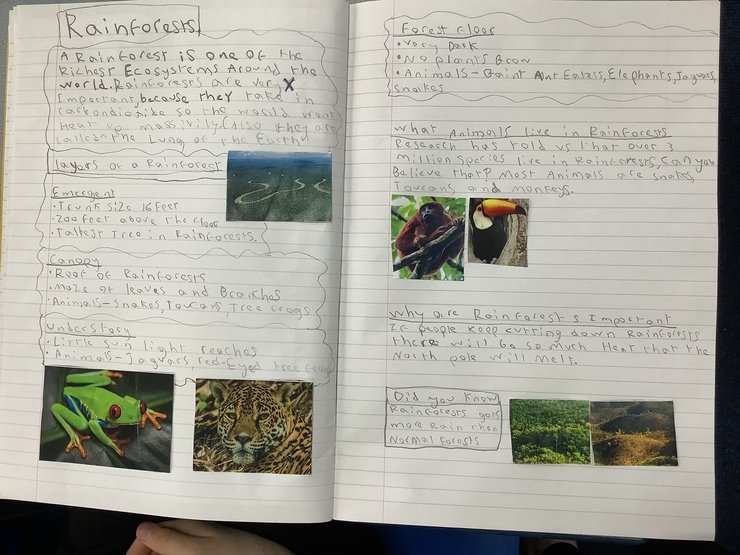 Rainforests
A Rainforest is one of the
Richest Ecosystems Around the
world. Rainforests are very x
Important, because they take in
carbondioxide so the world wont
Heat up massivily. (Also they are
called the Lung of the Earth"
layers of a Rainforest
Emergent
• Trunk size 16 Feet
• 200 feet above the floor
• Tallest Tree in Rainforests.
Canopy
• Roof of Rainforests
• maze of leaves and Branches
• Animals- snakes, Toucans, Tree frogs
Understory
• Little sun light reaches
• Animals- Jaguars, red-Eyed tree frogs
Forest Floor
• Very Dark
• No plants Grow
• Animals - Gaint Ant Eaters, Elephants, Jaguars,
snakes
What Animals live in Rainforests
Research has told us That over 3
million species live in Rainforests, Can you
Believe that? Most Animals are snakes,
Toucans and monkeys.
Why are Rainforest s Important
If people keep cutting down Rainforests
there will be so much Heat that the
North pole will Melt.
Did you Know
Rainforests gets
more Rain than
Normal Forests